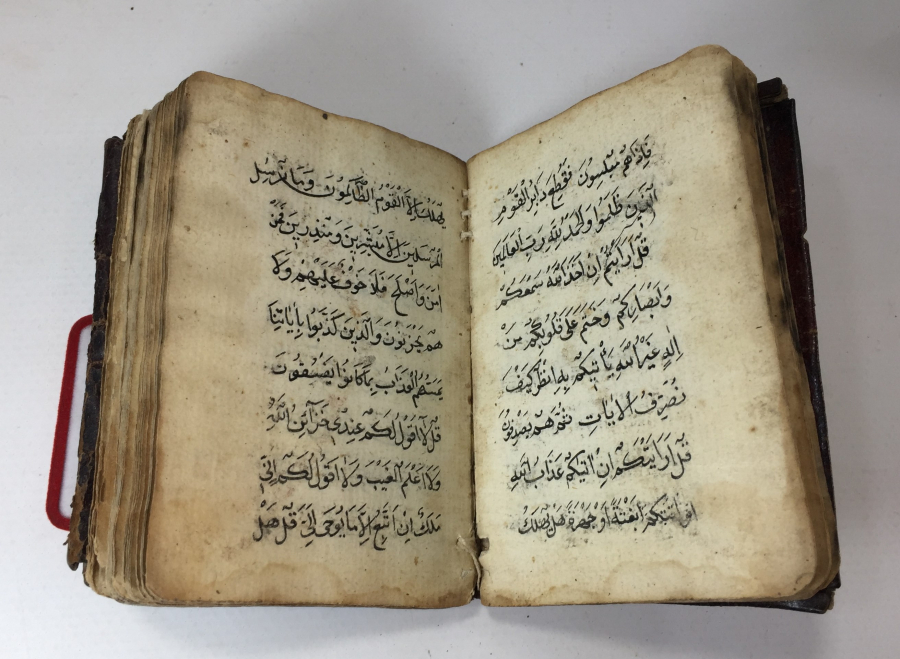 فَإِذَاهُمْ مُبْلِسُونَ فَقُطِعَ دَابِرُ الْقَوْمِ
الَّذِينَ ظَلَمُوا وَالْحَمْدُ لِلَّهِ رَبِّ الْعَالَمِينَ
قُلْ أَرَأَيْتُمْ إِنْ أَخَذَ اللَّهُ سَمْعَكُمْ
وَأَبْصَارَكُمْ وَخَتَمَ عَلَى قُلُوبِكُمْ مَنْ
إِلَهٌ غَيْرُ اللَّهِ يَأْتِيكُمْ بِهِ انْظُرْ كَيْفَ
نُصَرِّفُ الْآيَاتِ ثُمَّ هُمْ يَصْدِفُونَ
قُلْ أَرَأَيْتَكُمْ إِنْ أَتَيكُمْ عَذَابُ اللَّهِ
بَغْتَةً أَوْ جَهْرَةً هَلْ يُهْلَكُ
يُهْلَكُ إِلَّا الْقَوْمُ الظَّالِمُونَ وَمَا نُرْسِلُ
الْمُرْسَلِينَ إِلَّا مُبَشِّرِينَ وَمُنْذِرِينَ فَمَنْ
آمَنَ وَأَصْلَحَ فَلَا خَوْفٌ عَلَيْهِمْ وَلَا
هُمْ يَحْزَنُونَ وَالَّذِينَ كَذَّبُوا بِآيَاتِنَا
يَمَسُّهُمُ الْعَذَابُ بِمَا كَانُوا يَفْسُقُونَ
قُلْ لَا أَقُولُ لَكُمْ عِنْدِي خَزَآئِنُ اللَّهِ
وَلَا أَعْلَمُ الْغَيْبَ وَلَا أَقُولُ لَكُمْ إِنِّي
مَلَكٌ إِنْ أَتَّبِعُ إِلَّا مَا يُوحَى إِلَيَّ قُلْ هَلْ